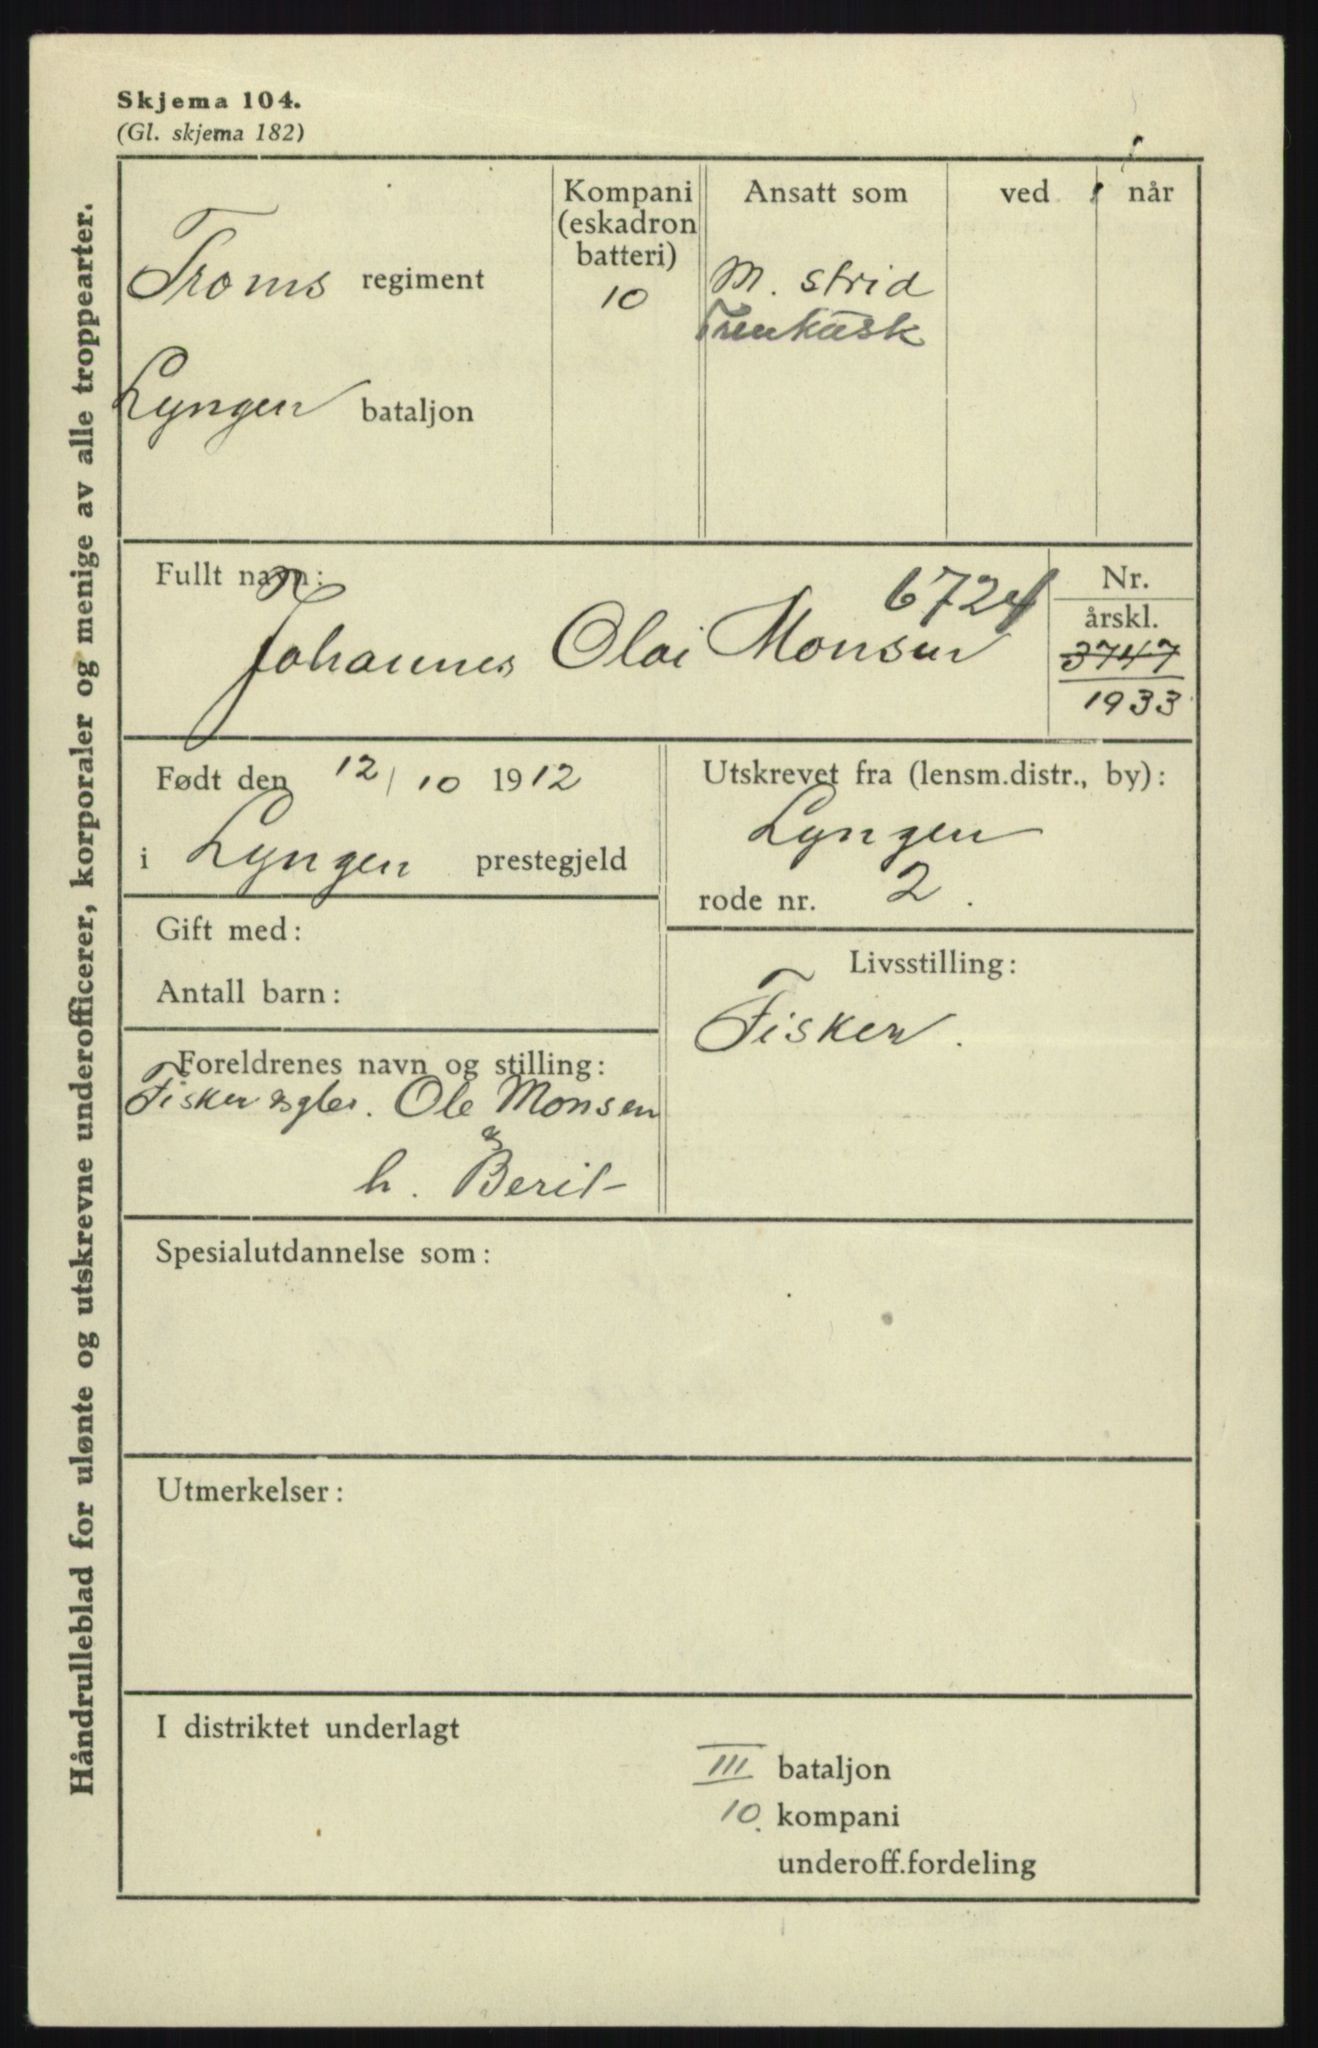 Skjema 104.
(Gl. skjema 182)
Håndrulleblad for ulønte og utskrevne underofficerer, korporaler og menige av alle troppearter.
Troms regiment
Lyngen bataljon
Kompani
(eskadron
batteri)
10
Ansatt som
M. strid
Trenkusk
ved
når
Fullt navn:
6724
Johannes Olai Monsen
Nr.
årskl.
3747
1933
Født den 12/10 1912
i Lyngen prestegjeld
Utskrevet fra (lensm.distr., by):
Lyngen
rode nr. 2.
Gift med:
Antall barn:
Livsstilling:
Fisker.
Foreldrenes navn og stilling:
Fisker Ole Monsen
og
h. Berit
Spesialutdannelse som:
Utmerkelser:
I distriktet underlagt
III bataljon
10. kompani
underoff.fordeling